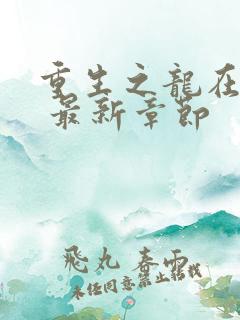 重生之龍在
最新章節
飛丸春雨
未经同意禁止转载